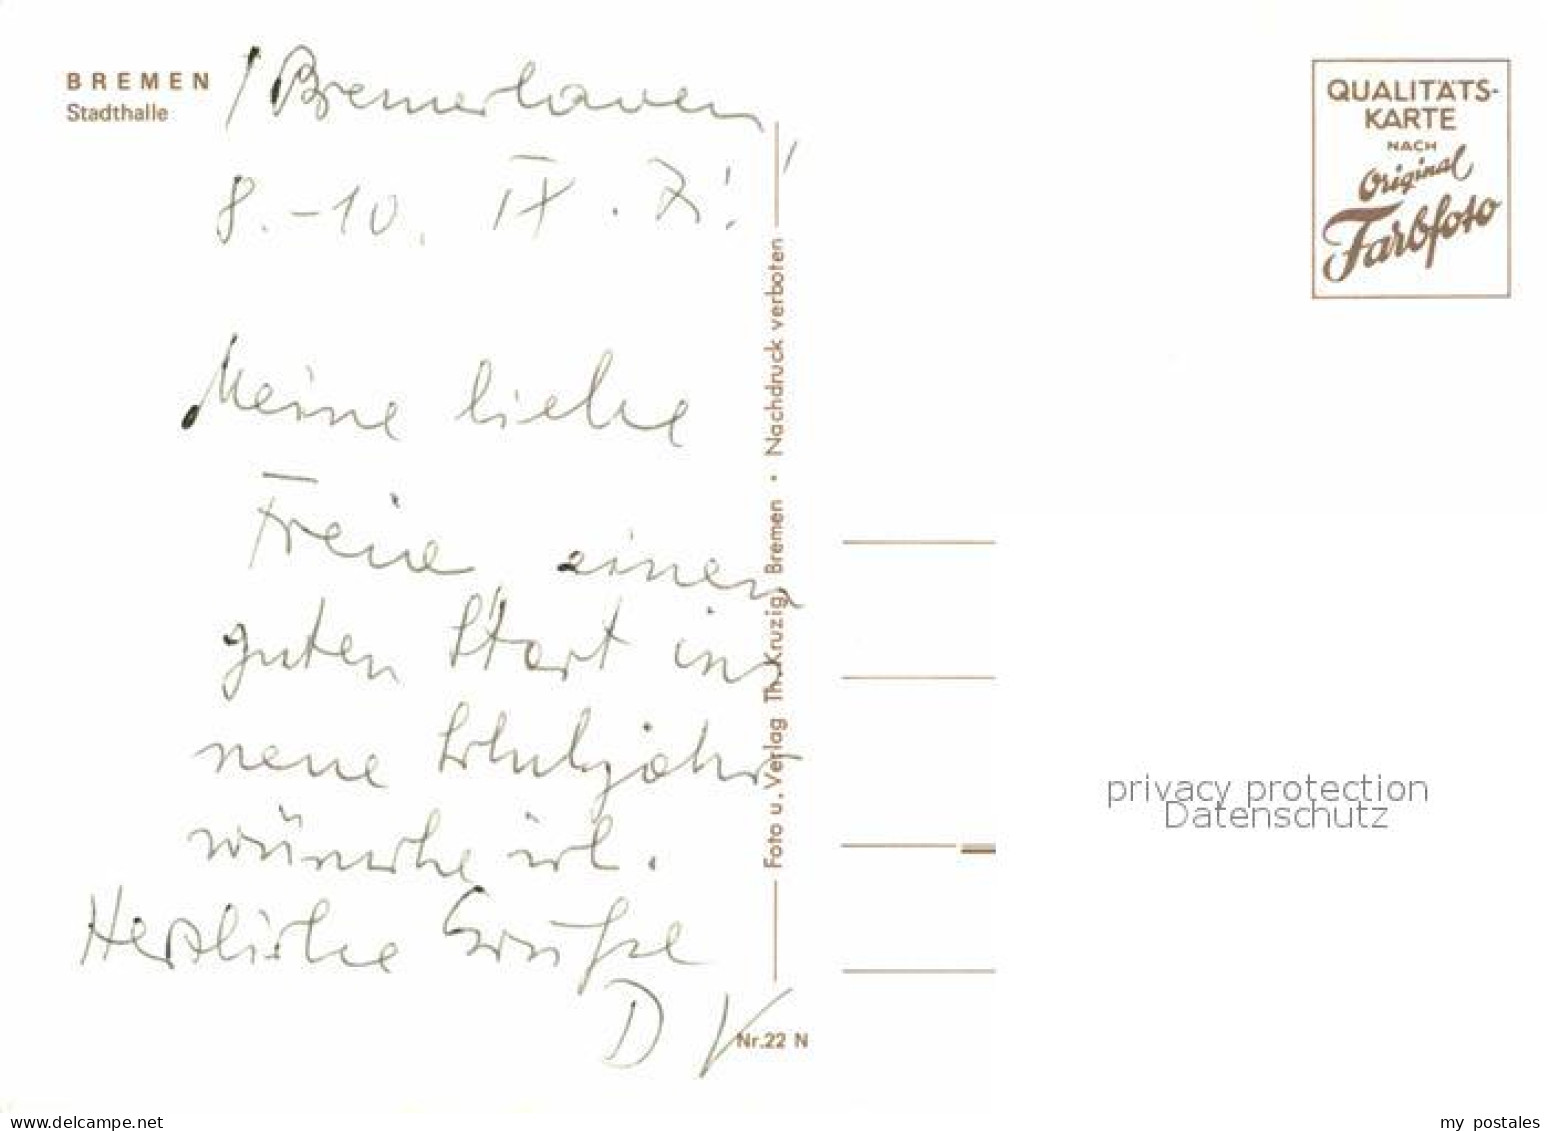 BREMEN
Stadthalle
/ Bremerhaven,
8.-10. IX. 71.
Meine liebe
Freie, einen
guten Start ins
neue Schuljahr
wünsche ich.
Herzliche Grüße
D V
Foto u. Verlag Th. Kruzig, Bremen • Nachdruck verboten
Nr. 22 N
QUALITÄTS-
KARTE
NACH
Original
Farbfoto
privacy protection
Datenschutz
www.delcampe.net
my postales